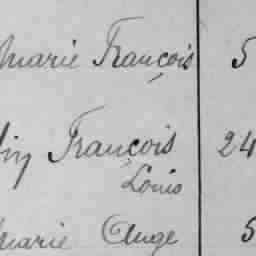 Marie François 5
François 24
Louis
Marie Ange 5